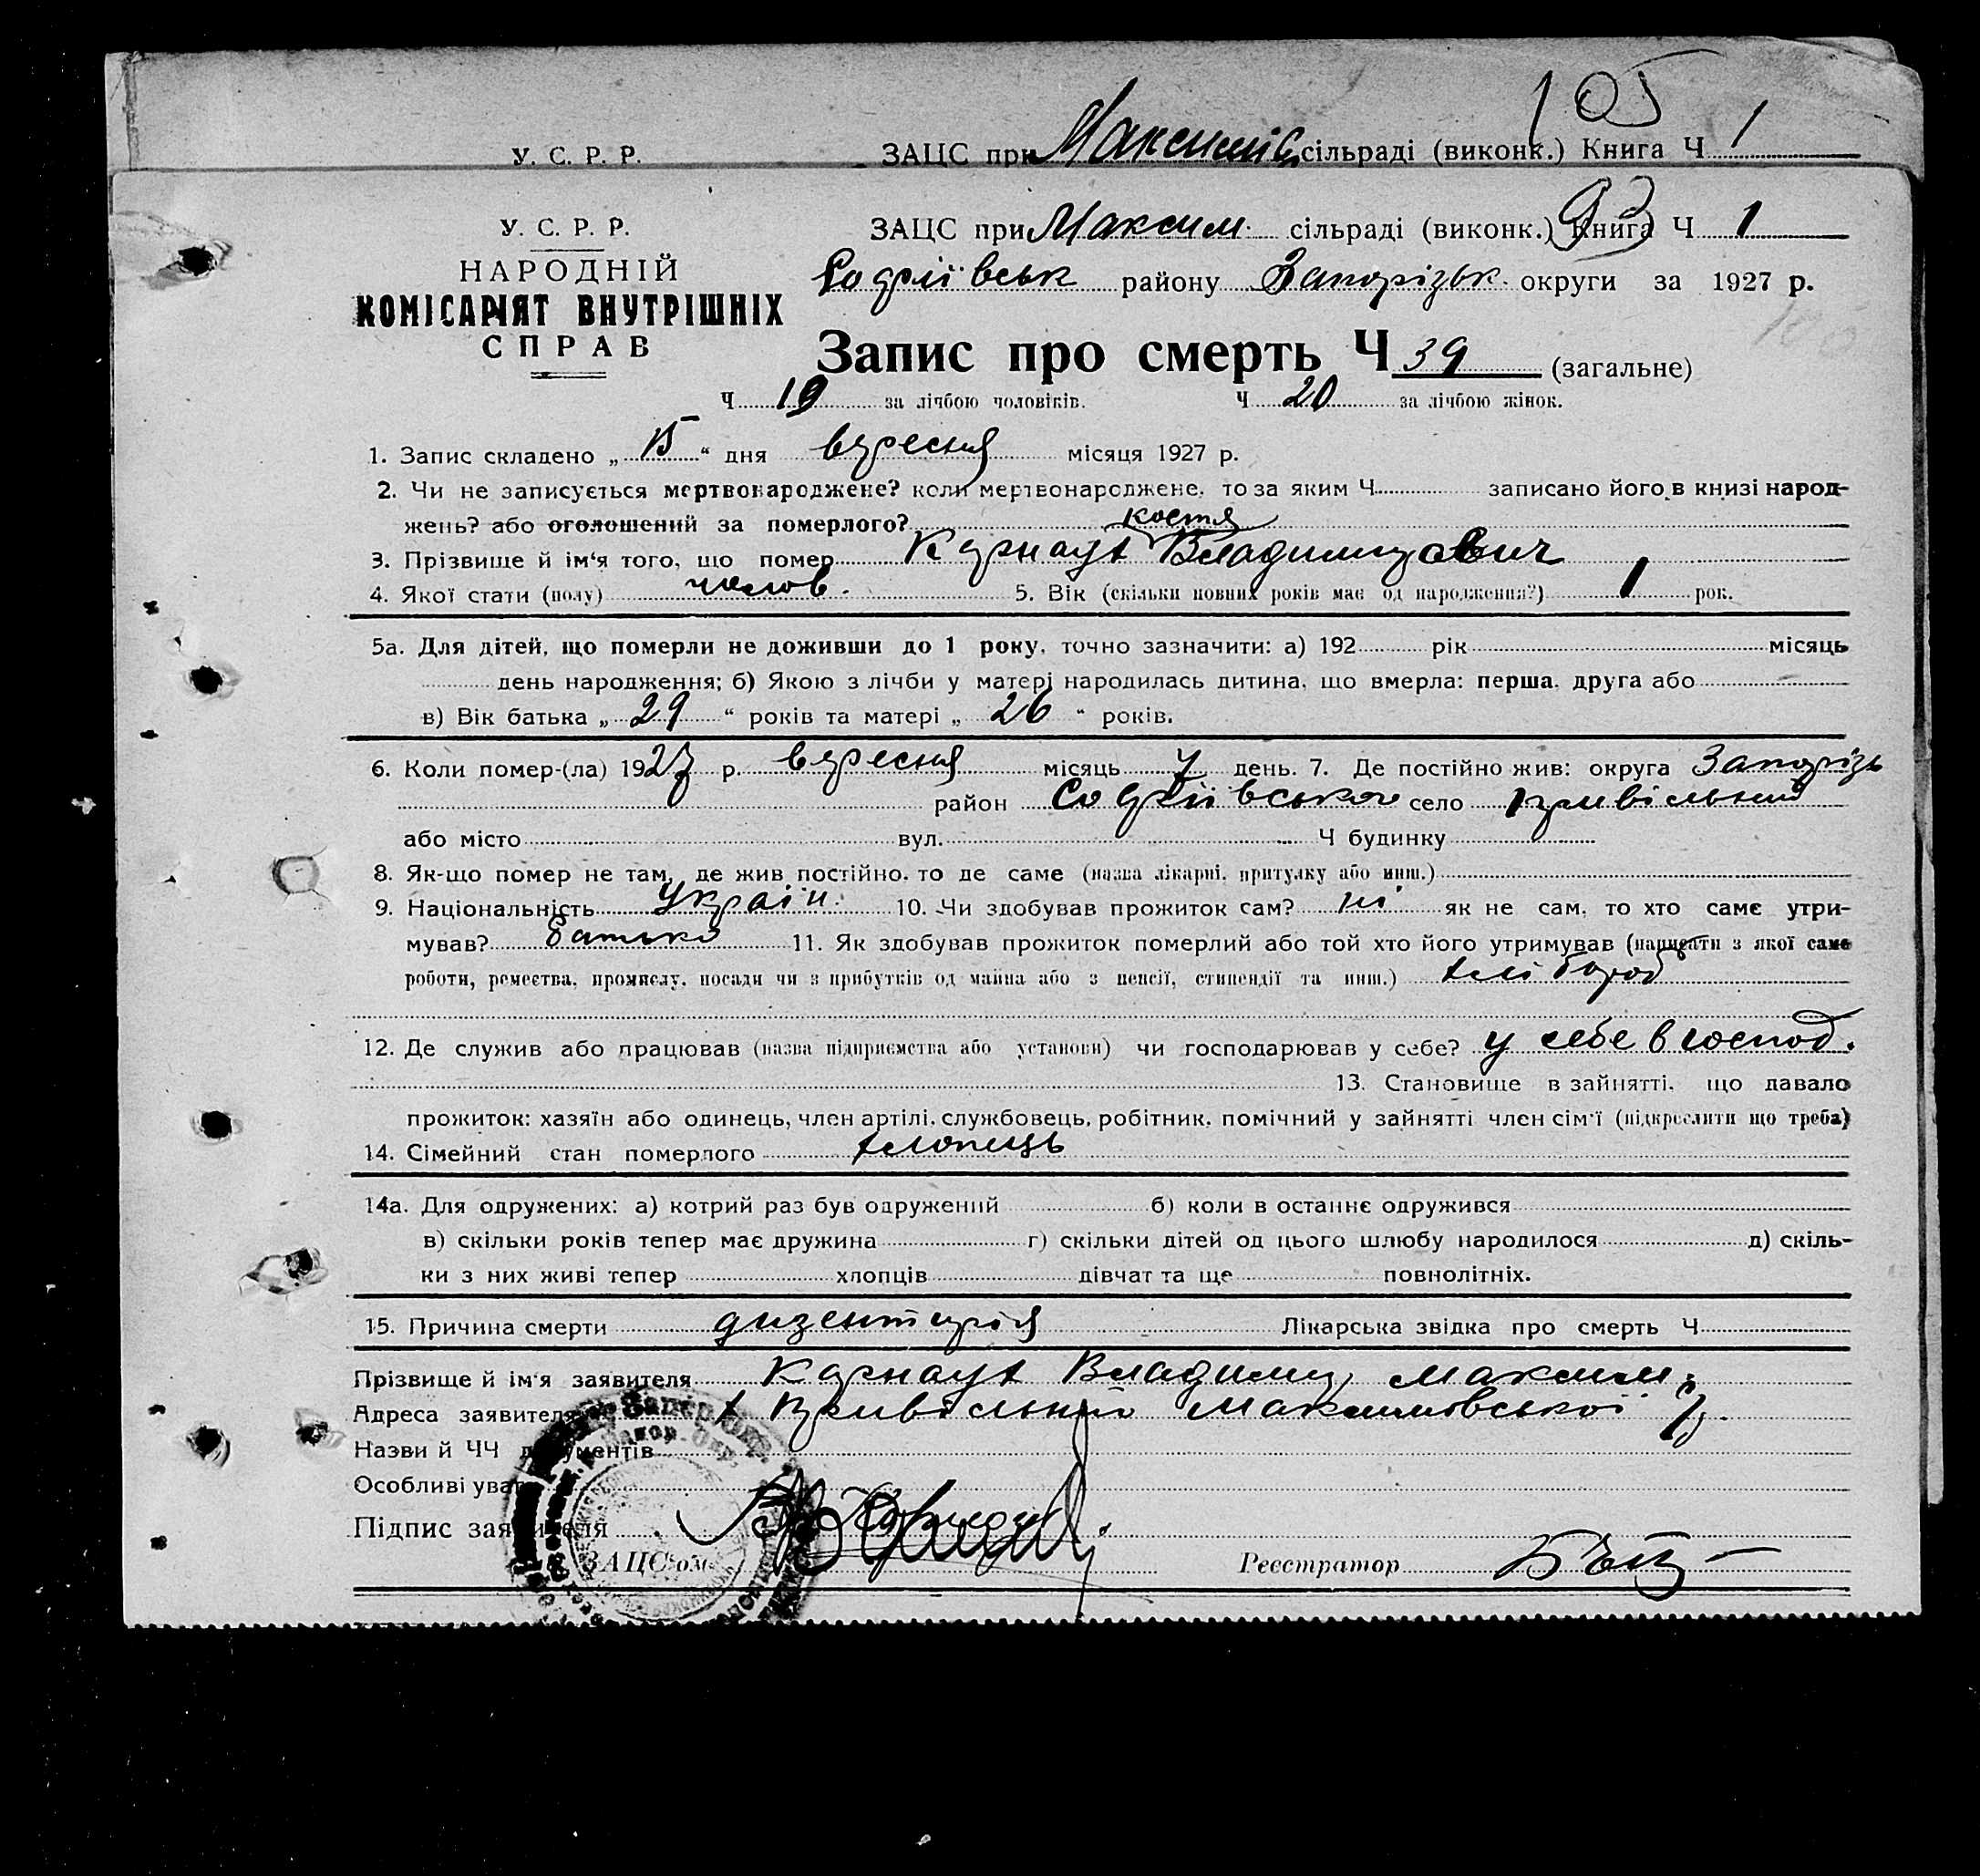 105
У. С. Р. Р. ЗАЦС при сільраді (виконк.) Книга Ч 1
93
У. С. Р. Р. ЗАЦС при Максим. сільраді (виконк.) Книга Ч 1
НАРОДНІЙ
КОМІСАРІЯТ ВНУТРІШНІХ
СПРАВ
району Запорізьк. округи за 1927 р.
100
Запис про смерть Ч 39 (загальне)
Ч 19 за лічбою чоловіків. Ч 20 за лічбою жінок.
1. Запис складено „ 15 “ дня вересня місяця 1927 р.
2. Чи не записується мертвонароджене? коли мертвонароджене, то за яким Ч. записано його в книзі народ-
жень? або оголошений за померлого?
костя
3. Прізвище й ім‘я того, що помер Карнаух Владимирович
4. Якої стати (полу) чолов. 5. Вік (скільки повних років має од народження?) 1 рок.
5а. Для дітей, що померли не доживши до 1 року, точно зазначити: а) 192 рік місяць
день народження; б) Якою з лічби у матері народилась дитина, що вмерла: перша, друга або
в) Вік батька „ 29 “ років та матері „ 26 “ років.
6. Коли помер-(ла) 1927 р. вересня місяць 7 день. 7. Де постійно жив: округа Запорізь
район Софіівського село Привільний
або місто вул. Ч будинку
8. Як-що помер не там, де жив постійно, то де саме (назва лікарні, притулку або инш.)
9. Національність Україн. 10. Чи здобував прожиток сам? ні як не сам, то хто саме утри-
мував? батько 11. Як здобував прожиток померлий або той хто його утримував (написати з якої саме
роботи, ремества, промислу, посади чи з прибутків од майна або з пенсії, стипендії та инш.) хлібороб
12. Де служив або працював (назва підприємства або установи) чи господарював у себе? у себе в господ.
13. Становище в зайнятті, що давало
прожиток: хазяїн або одинець, член артілі, службовець, робітник, помічний у зайнятті член сім'ї (підкреслити що треба)
14. Сімейний стан померлого хлопець
14а. Для одружених: а) котрий раз був одружений б) коли в останнє одружився
в) скільки років тепер має дружина г) скільки дітей од цього шлюбу народилося д) скіль-
ки з них живі тепер хлопців дівчат та ще повнолітніх.
15. Причина смерти дизентирія Лікарська звідка про смерть Ч
Прізвище й ім'я заявителя Карнаух Владимир Максим.
Адреса заявителя х Привільний Максимовської
Назви й ЧЧ документів
Особливі уваги
Підпис заявителя
ЗАЦСом Реєстратор